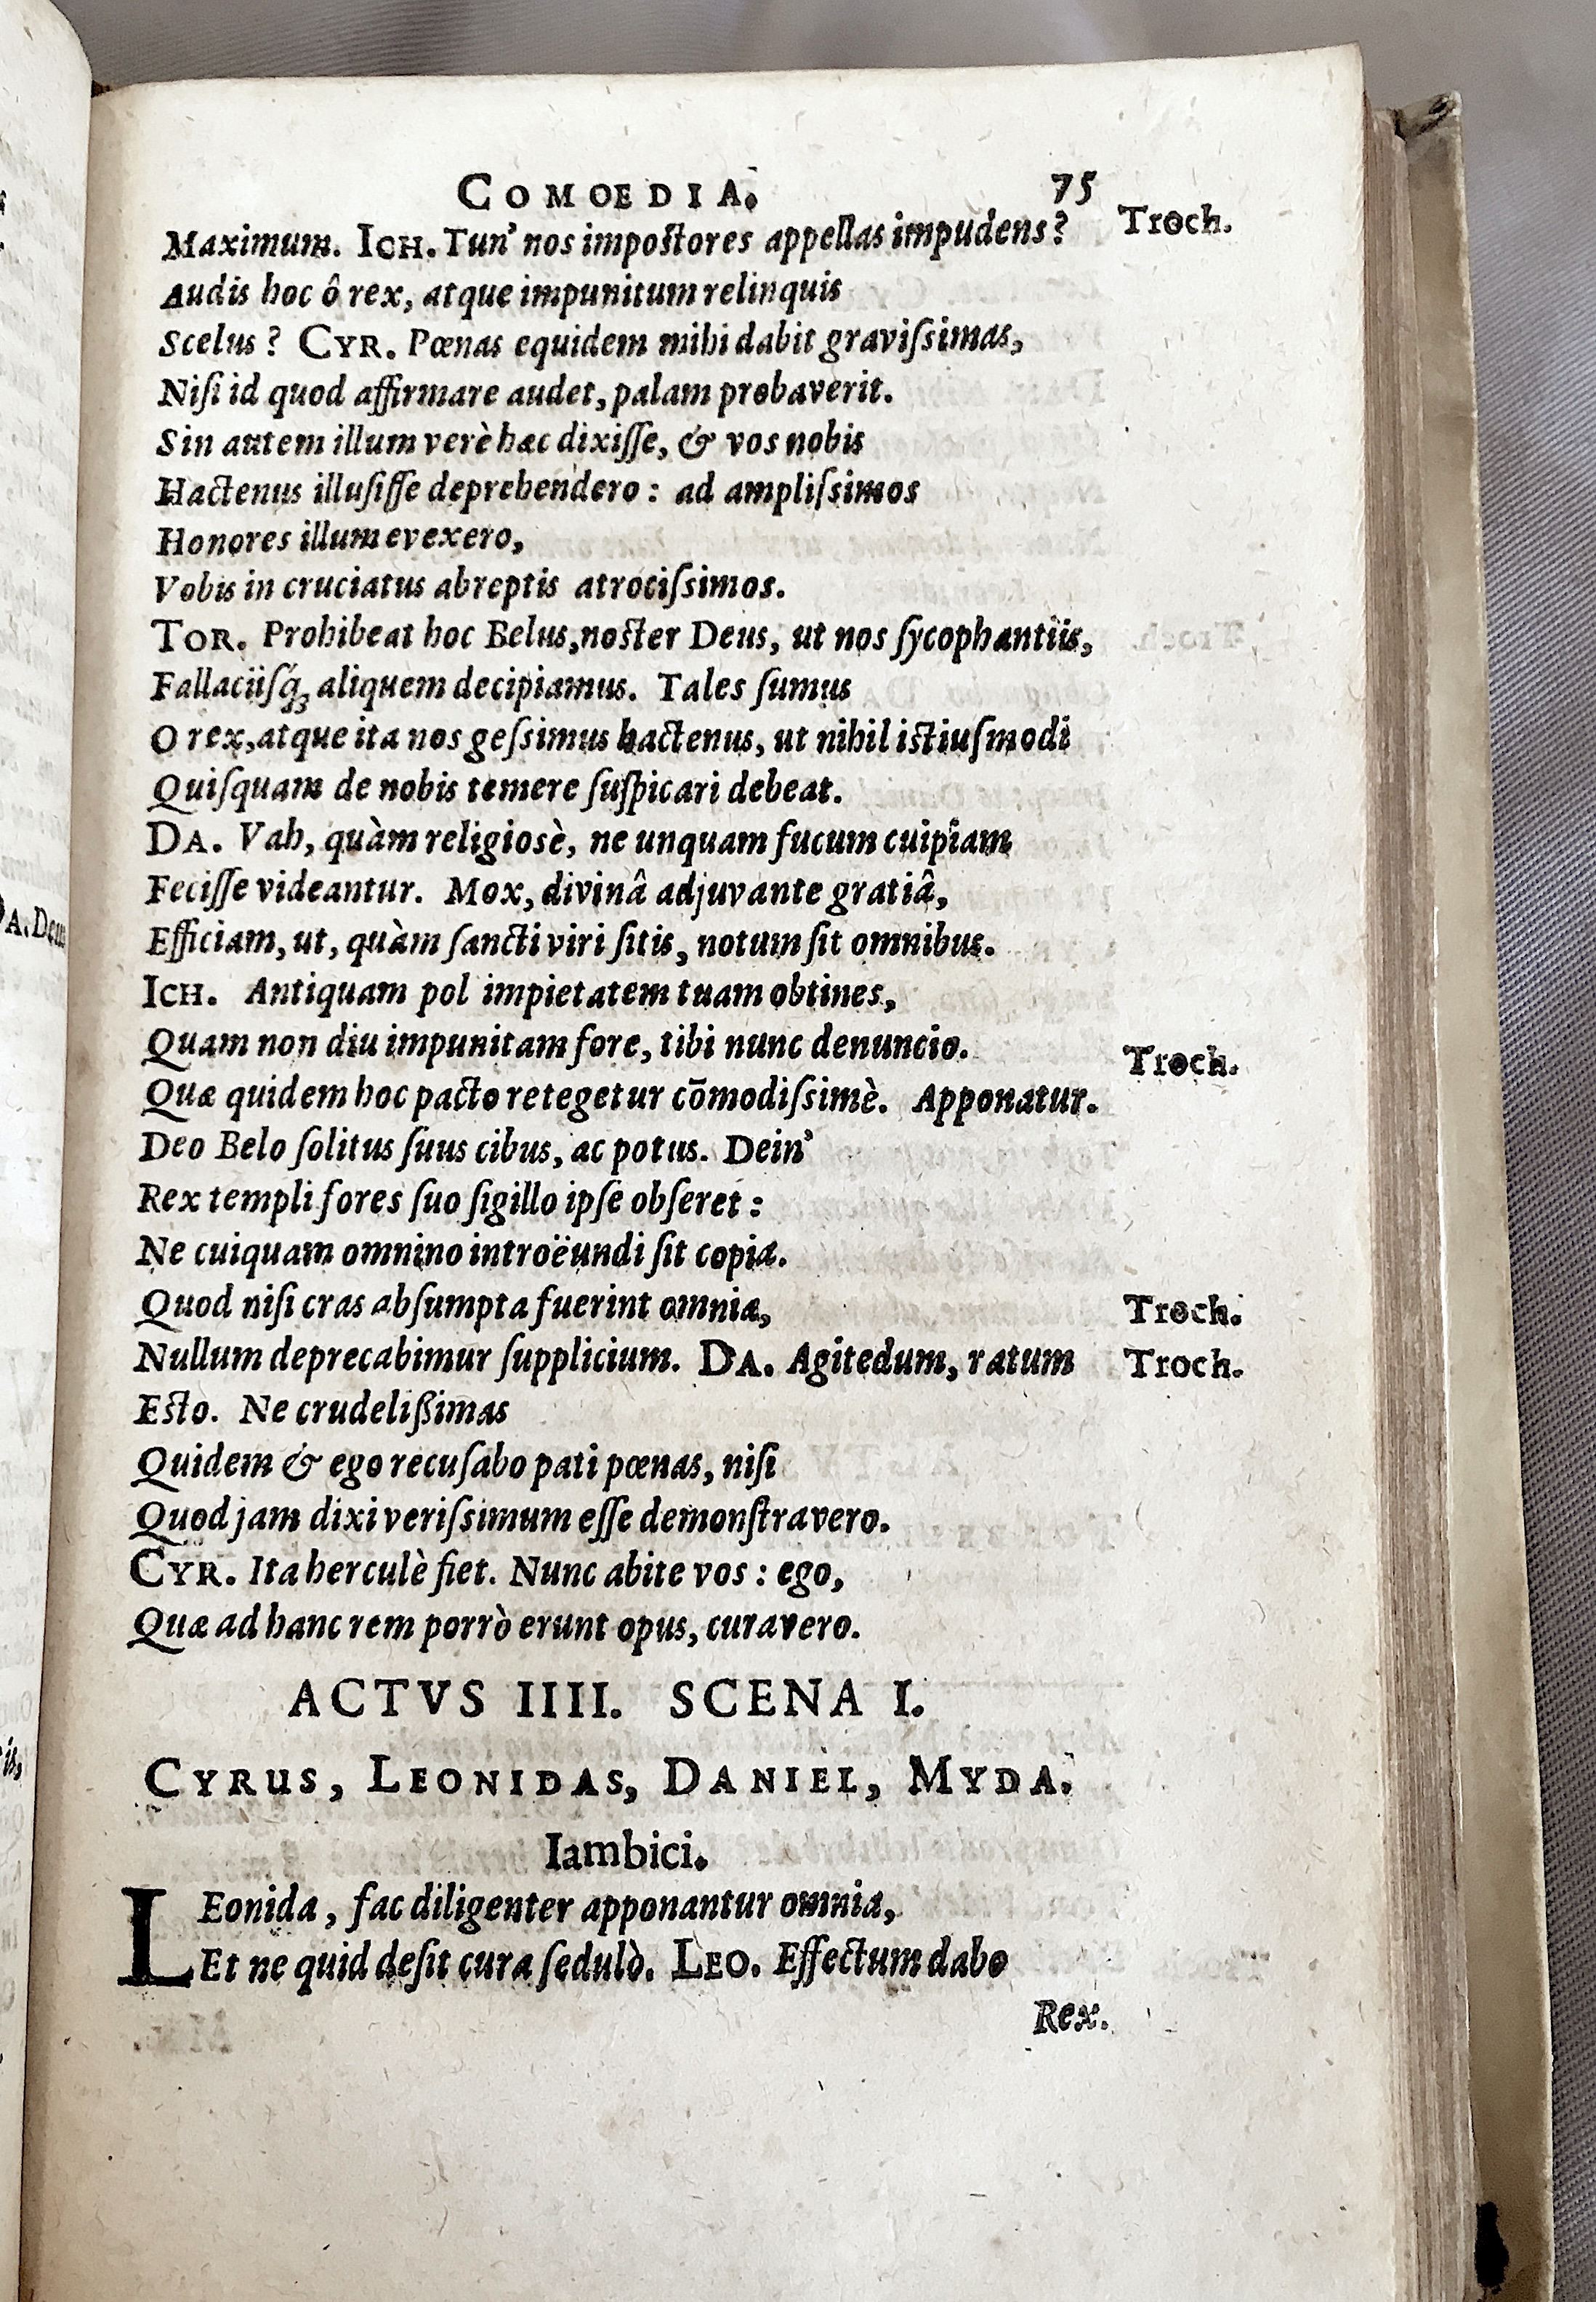 COMOEDIA. 75
Maximum. ICH. Tun' nos impostores appellas impudens? Troch.
Audis hoc ô rex, atque impunitum relinquis
Scelus? CYR. Pœnas equidem mihi dabit graviſsimas,
Niſi id quod affirmare audet, palam probaverit.
Sin autem illum verè hæc dixiſſe, & vos nobis
Hactenus illuſiſſe deprehendero: ad ampliſsimos
Honores illum evexero,
Vobis in cruciatus abreptis atrociſsimos.
TOR. Prohibeat hoc Belus, noster Deus, ut nos ſycophantiis,
Fallaciiſq́ꝫ aliquem decipiamus. Tales ſumus
O rex, atque ita nos geſsimus hactenus, ut nihil istiuſmodi
Quiſquam de nobis temere ſuſpicari debeat.
DA. Vah, quàm religiosè, ne unquam fucum cuipiam
Feciſſe videantur. Mox, divinâ adjuvante gratiâ,
Efficiam, ut, quàm ſancti viri ſitis, notum ſit omnibus.
ICH. Antiquam pol impietatem tuam obtines,
Quam non diu impunitam fore, tibi nunc denuncio.
Troch.
Quæ quidem hoc pacto retegetur cōmodiſsimè. Apponatur.
Deo Belo ſolitus ſuus cibus, ac potus. Dein'
Rex templi fores ſuo ſigillo ipſe obſeret:
Ne cuiquam omnino introëundi ſit copia.
Quod niſi cras abſumpta fuerint omnia, Troch.
Nullum deprecabimur ſupplicium. DA. Agitedum, ratum Troch.
Esto. Ne crudelißimas
Quidem & ego recuſabo pati pœnas, niſi
Quod jam dixi veriſsimum eſſe demonſtravero.
CYR. Ita herculè fiet. Nunc abite vos: ego,
Quæ ad hanc rem porrò erunt opus, curavero.
ACTVS IIII. SCENA I.
CYRUS, LEONIDAS, DANIEL, MYDA.
Iambici.
LEonida, fac diligenter apponantur omnia,
Et ne quid deſit cura ſedulò. LEO. Effectum dabo
Rex.